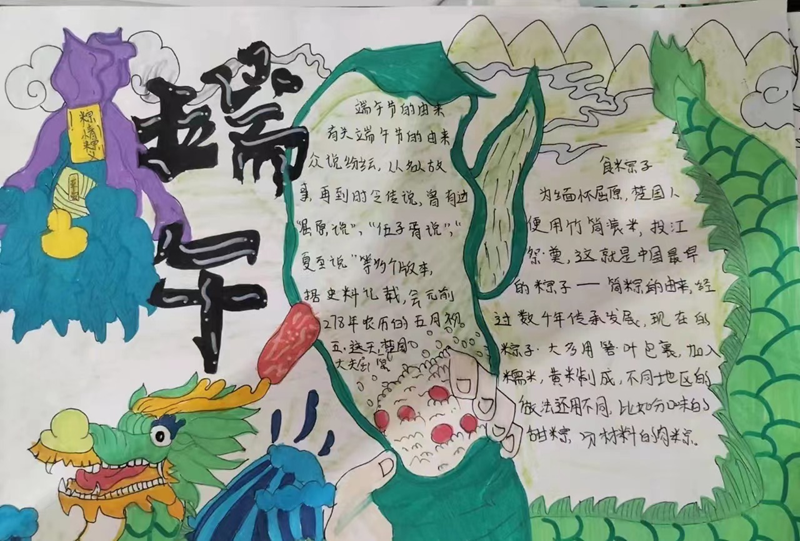 端午
端午节的由来
有关端午节的由来
众说纷纭，从
事，再到时令传说，曾有过
“屈原说”，“伍子胥说”，“
夏至说”等多个版本，
据史料记载，公元前
278年农历的五月初
五，这天，楚国
大夫
食粽子
为缅怀屈原，楚国人
便用竹筒装米，投江
祭奠，这就是中国最早
的粽子——筒粽的由来，经
过数千年传承发展，现在的
粽子，大多用箬叶包裹，加入
糯米，黄米制成，不同地区的
做法还用不同，比如分口味的
甜粽，材料的肉粽。